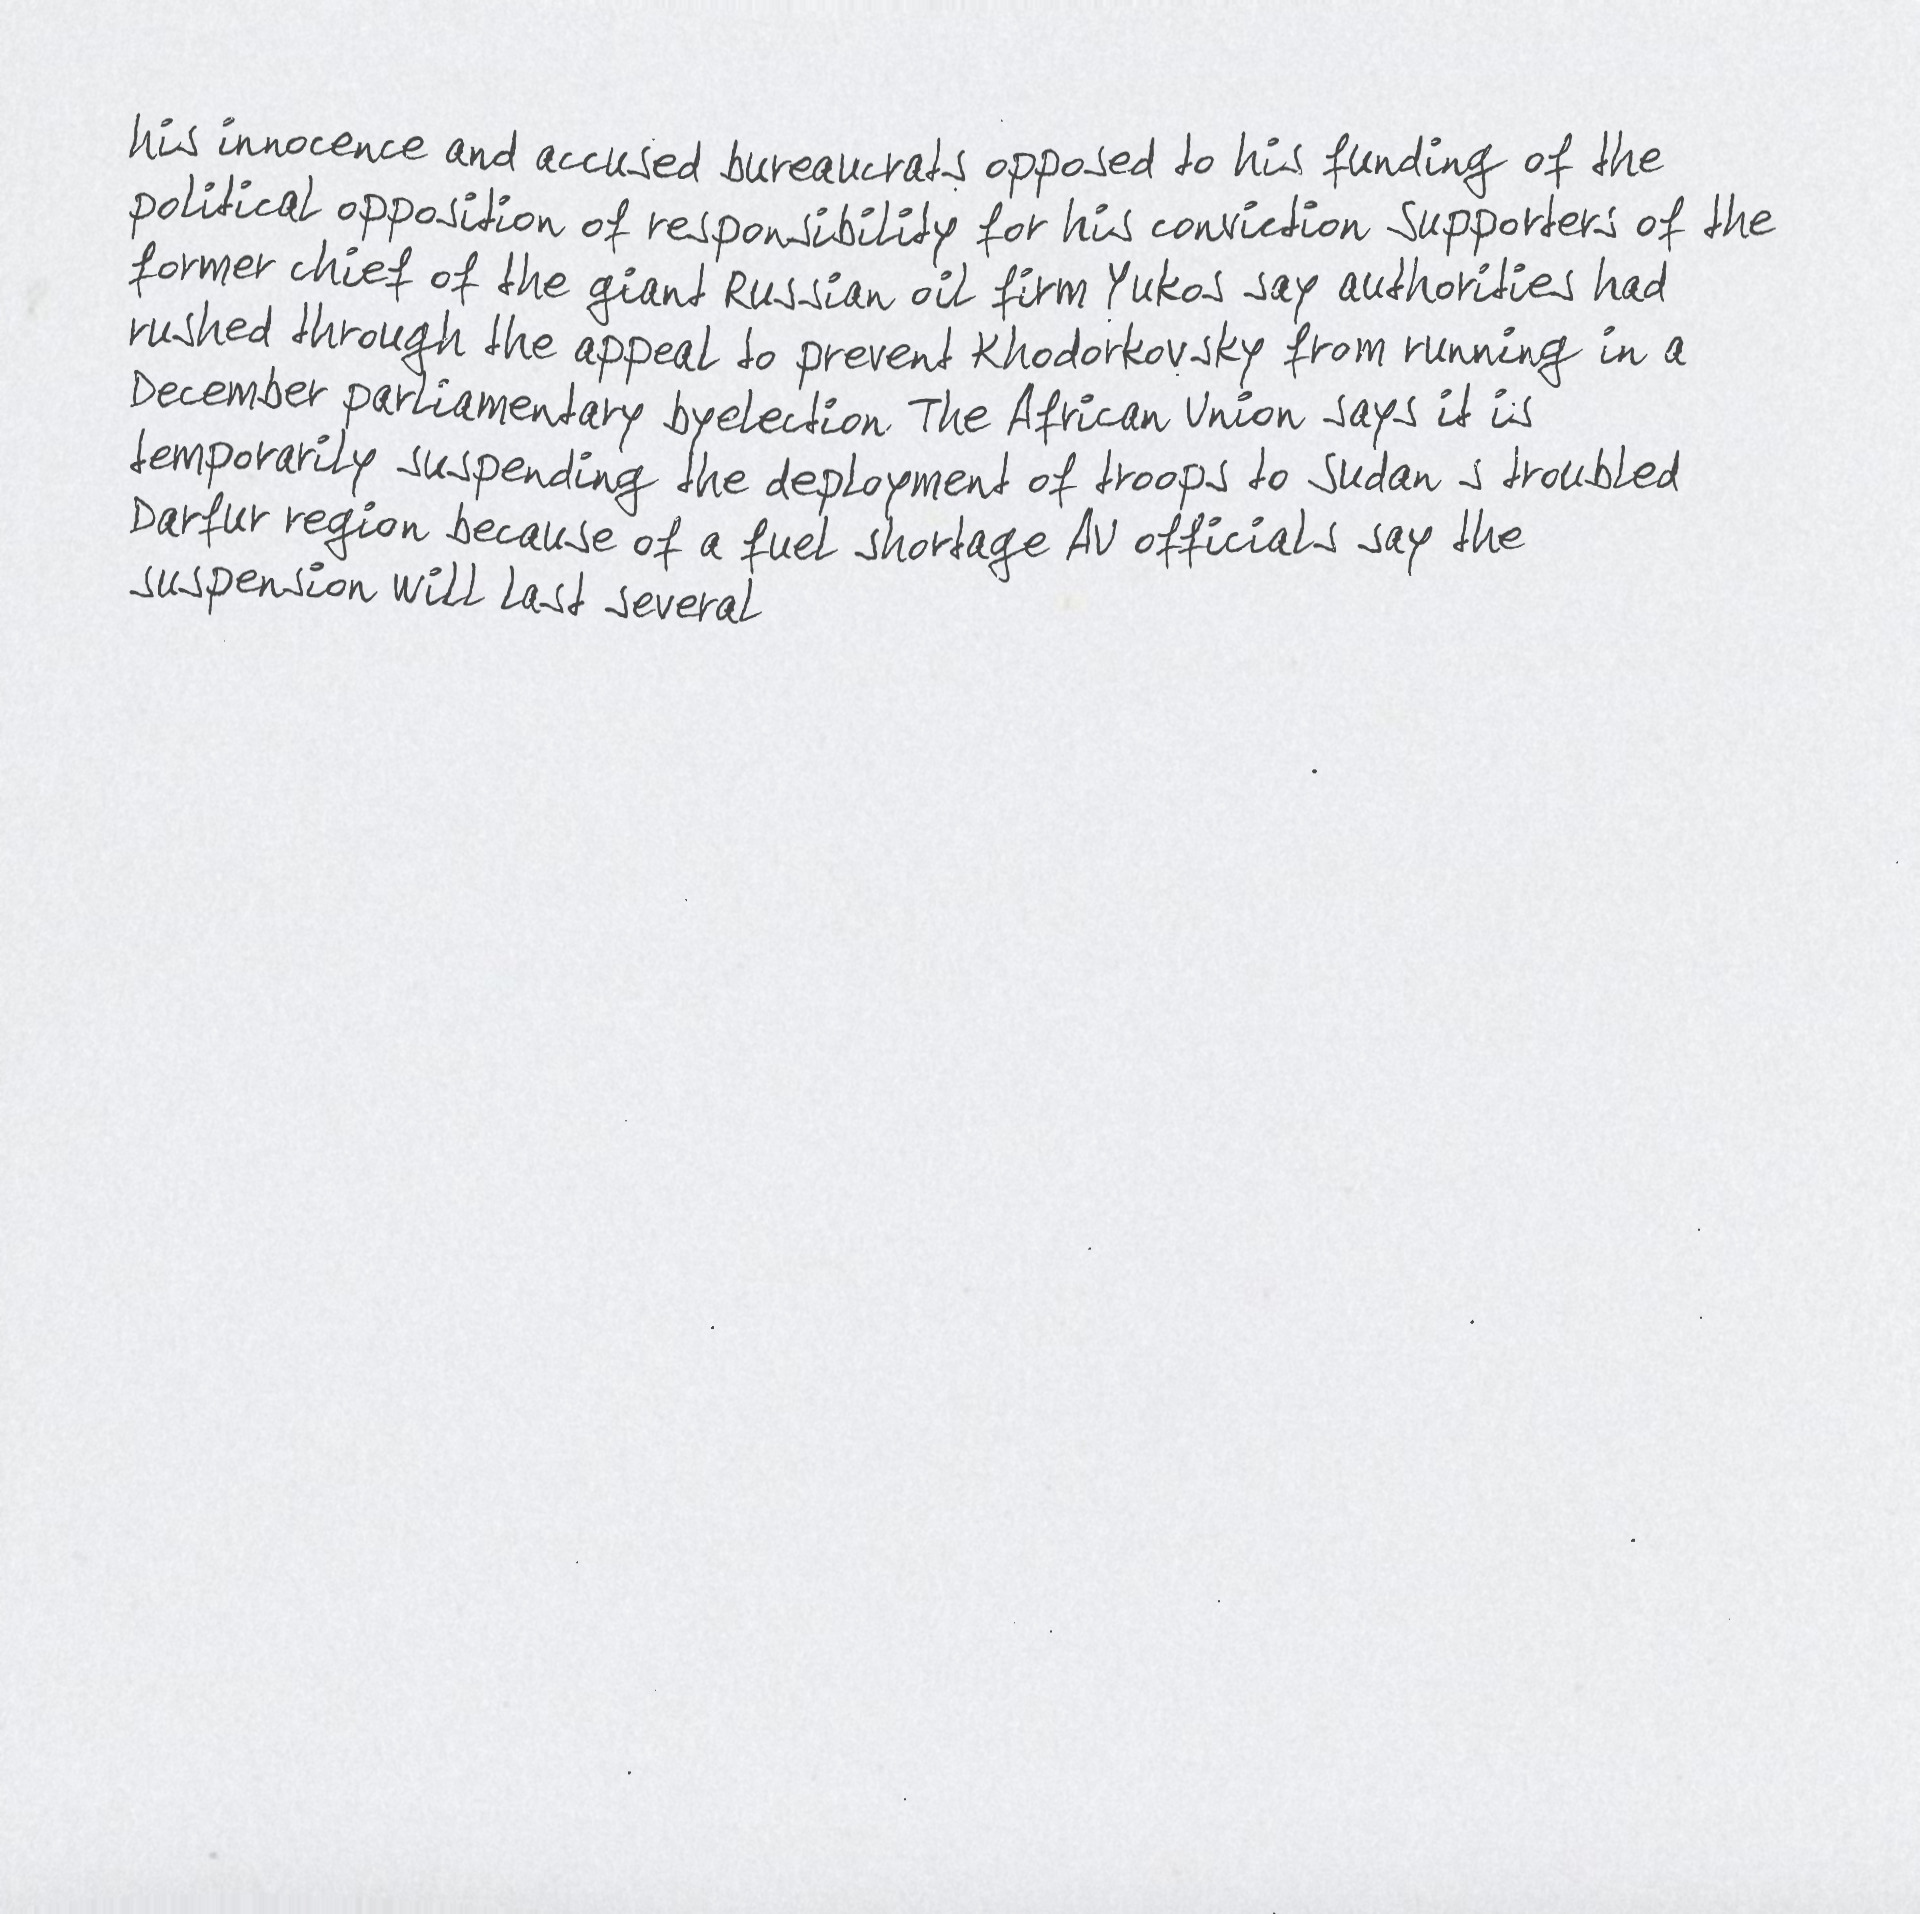 his innocence and accused bureaucrats opposed to his funding of the
political opposition of responsibility for his conviction Supporters of the
former chief of the giant Russian oil firm Yukos say authorities had
rushed through the appeal to prevent Khodorkovsky from running in a
December parliamentary byelection The African Union says it is
temporarily suspending the deployment of troops to Sudan s troubled
Darfur region because of a fuel shortage AU officials say the
suspension will last several